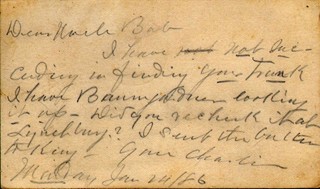 Dear Uncle Bob
I have not suc-
ceeding in finding your Trunk
I have Baumgardner looking
it up - Did you recheck it at
Lynchburg? I sent the letter
to King - Your Charlie
Monday Jan 24/86